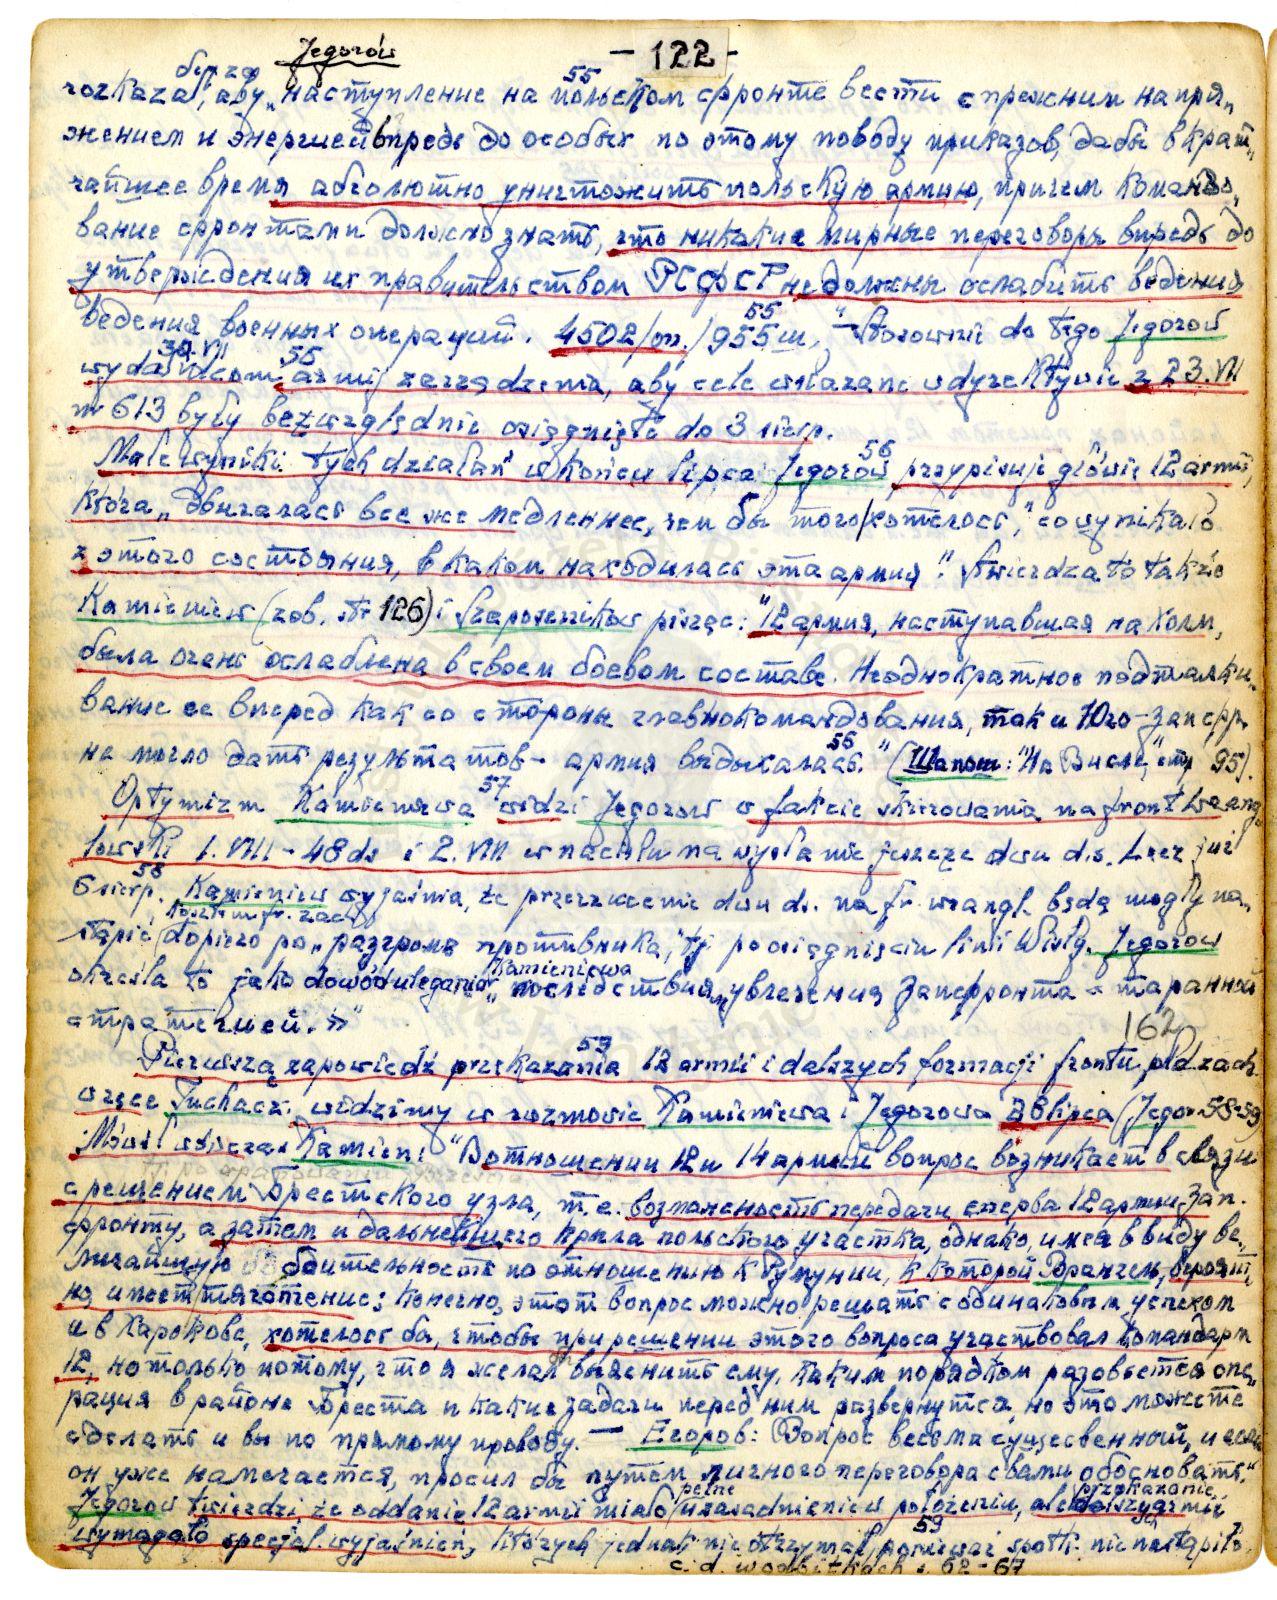 Jegorów
-122-
rozkazał, aby „наступление на польском фронте вести с прежним напря„
жением и энергией впредь до особых по этому поводу приказов, дабы в крат„
чайшее время абсолютно уничтожить польскую армию, причем командо„
вание фронтами должно знать, что никакие мирные переговоры впредь до
утверждения их правительством РСФСР не должны ослабить ведения
ведения военных операций. 4502/оп./955ш" 55 – Stosownie do tego Jegorow
30.VII
wydał 55 armij zarządzenia, aby cele wskazane w dyrektywie z 23.VII
nr 613 były bezwzględnie osiągnięte do 3 sierp.
Małe wyniki tych działań w końcu lipca Jegorow 56 przypisuje głównie 12 armii,
która „двигалась все же медленнее, чем бы того хотелось," co wynikało
z „того состояния, в каком находилась эта армия". Stwierdza to także
Kamieniew (zob. str 126) i Szaposznikow pisząc: "12 армия, наступавшая на Холм,
была очень ослаблена в своем боевом составе. Неоднократное подталки„
вание ее вперед как со стороны главнокомандования, так и Юго-Зап. фр.
не могло дать результатов - армия выдыхалась. 56" (Шапош: "На Висле", стр 95).
Optymizm Kamieniewa 57 widzi Jegorow w fakcie skierowania na front wrang„
lowski 1.VIII - 48 ds i 2.VIII w nacisku na wysłanie jeszcze dwu d.s. Lecz już
6 sierp. 58 Kamieniew wyjaśnia, że przerzucenie dwu ds. na fr. wrangl. będą mogły na„
kosztem fr. zach.
stąpić dopiero po „разгроме противника," tj po osiągnięciu linii Wisły. Jegorow
Kamieniewa
określa to jako dowód ulegania „последствия „увлечения Запфронта таранной
стратегией.»"
162
Pierwszą zapowiedź przekazania 59 12 armii i dalszych formacji frontu płd zach.
w ręce Tuchacz. widzimy w rozmowie Kamieniewa i Jegorowa lipca (Jegor 58-59)
Mówi wówczas Kamien: "В отношении 12 и 14 армий вопрос возникает в связи
с решением Брестского узла, т.е. возможность передачи сперва 12 армии Зап.
фронту, а затем и дальнейшего крыла польского участка, однако, имея в виду ве„
личайшую бдительность по отношению к Румынии, к которой Врангель, вероят„
но, имеет тяготение; конечно, этот вопрос можно решать с одинаковым успехом
и в Харькове, хотелось бы, чтобы при решении этого вопроса участвовал командарм
12, но только потому, что я желал бы выяснить ему, каким порядком разовьется опе„
рация в районе Бреста и какие задачи перед ним развернутся, но это можете
сделать и вы по прямому проводу. – Егоров: Вопрос весьма существенный, и если
он уже намечается, просил бы путем личного переговора с вами обосновать."
pełne przekazanie
Jegorow twierdzi, że oddanie 12 armii miało uzasadnienie w położeniu, ale dalszych armii
wymagało specjal. wyjaśnień, których jednak nie otrzymał, ponieważ spotk. nie nastąpiło. 59
c.d. w odbitkach: 62-67